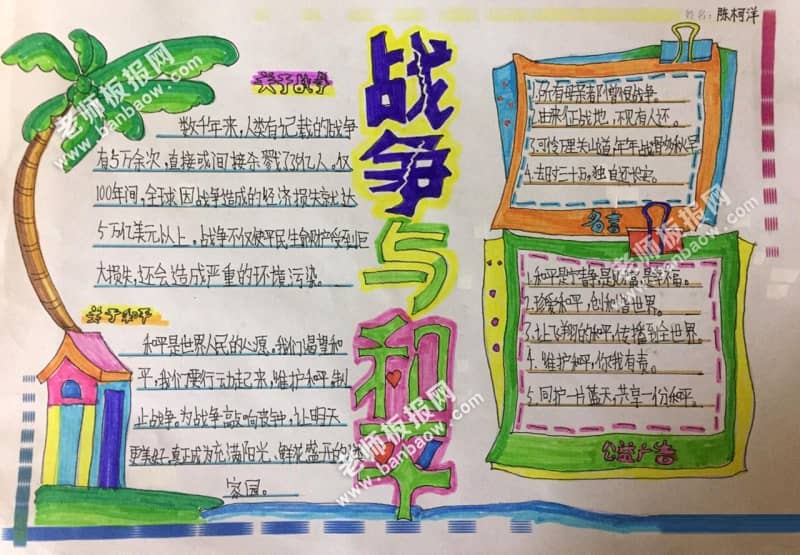 姓名：陈柯洋
战争与和平
关于战争
数千年来，人类有记载的战争
有5万余次，直接或间接杀戮了36亿人。仅
100年间，全球因战争造成的经济损失就达
5万亿美元以上。战争不仅使平民生命财产受到巨
大损失，还会造成严重的环境污染。
关于和平
和平是世界人民的心愿，我们渴望和
平，我们要行动起来，维护和平，制
止战争。为战争敲响丧钟，让明天
更美好，真正成为充满阳光、鲜花盛开的
家园。
1.所有母亲都憎恨战争。
2.由来征战地，不见有人还。
3.可怜万里关山道，年年战骨多秋草
4.去时三十万，独自还长安。
名言
1.和平是宁静，是财富，是幸福。
2.珍爱和平，创和谐世界。
3.让飞翔的和平，传播到全世界。
4.维护和平，你我有责。
5.同护一片蓝天，共享一份和平。
公益广告
老师板报网
www.banbaow.com
老师板报网
www.banbaow.com
老师板报网
www.banbaow.com
老师板报网
www.banbaow.com